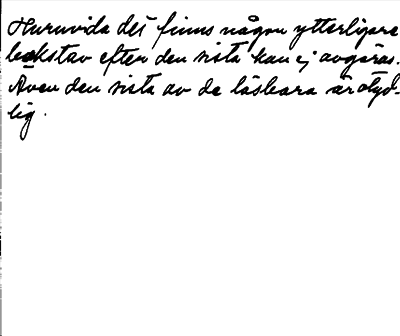 Huruvida det finns någon ytterligare
bokstav efter den sista kan ej avgöras.
Även den sista av de läsbara är otyd-
lig.